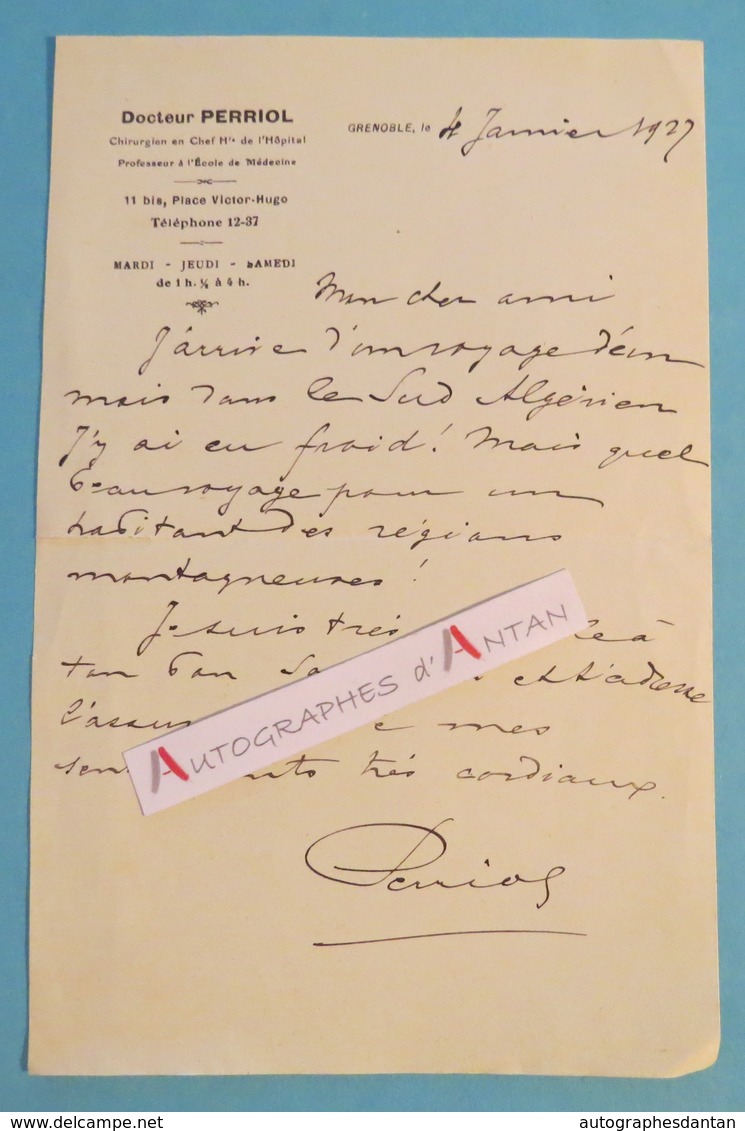 Docteur PERRIOL
Chirurgien en Chef Hre de l'Hôpital
Professeur à l'École de Médecine
11 bis, Place Victor-Hugo
Téléphone 12-37
MARDI - JEUDI - SAMEDI
de 1 h. ½ à 4 h.
GRENOBLE, le 4 Janvier 1927
Mon cher ami
J'arrive d'un voyage d'un
mois dans le Sud Algérien
J'y ai eu froid! Mais quel
beau voyage pour un
habitant des régions
montagneuses!
Je suis très à
ton bon et t'adresse
mes
très cordiaux.
Perriol
AUTOGRAPHES d'ANTAN
delcampe.net
autographesdantan